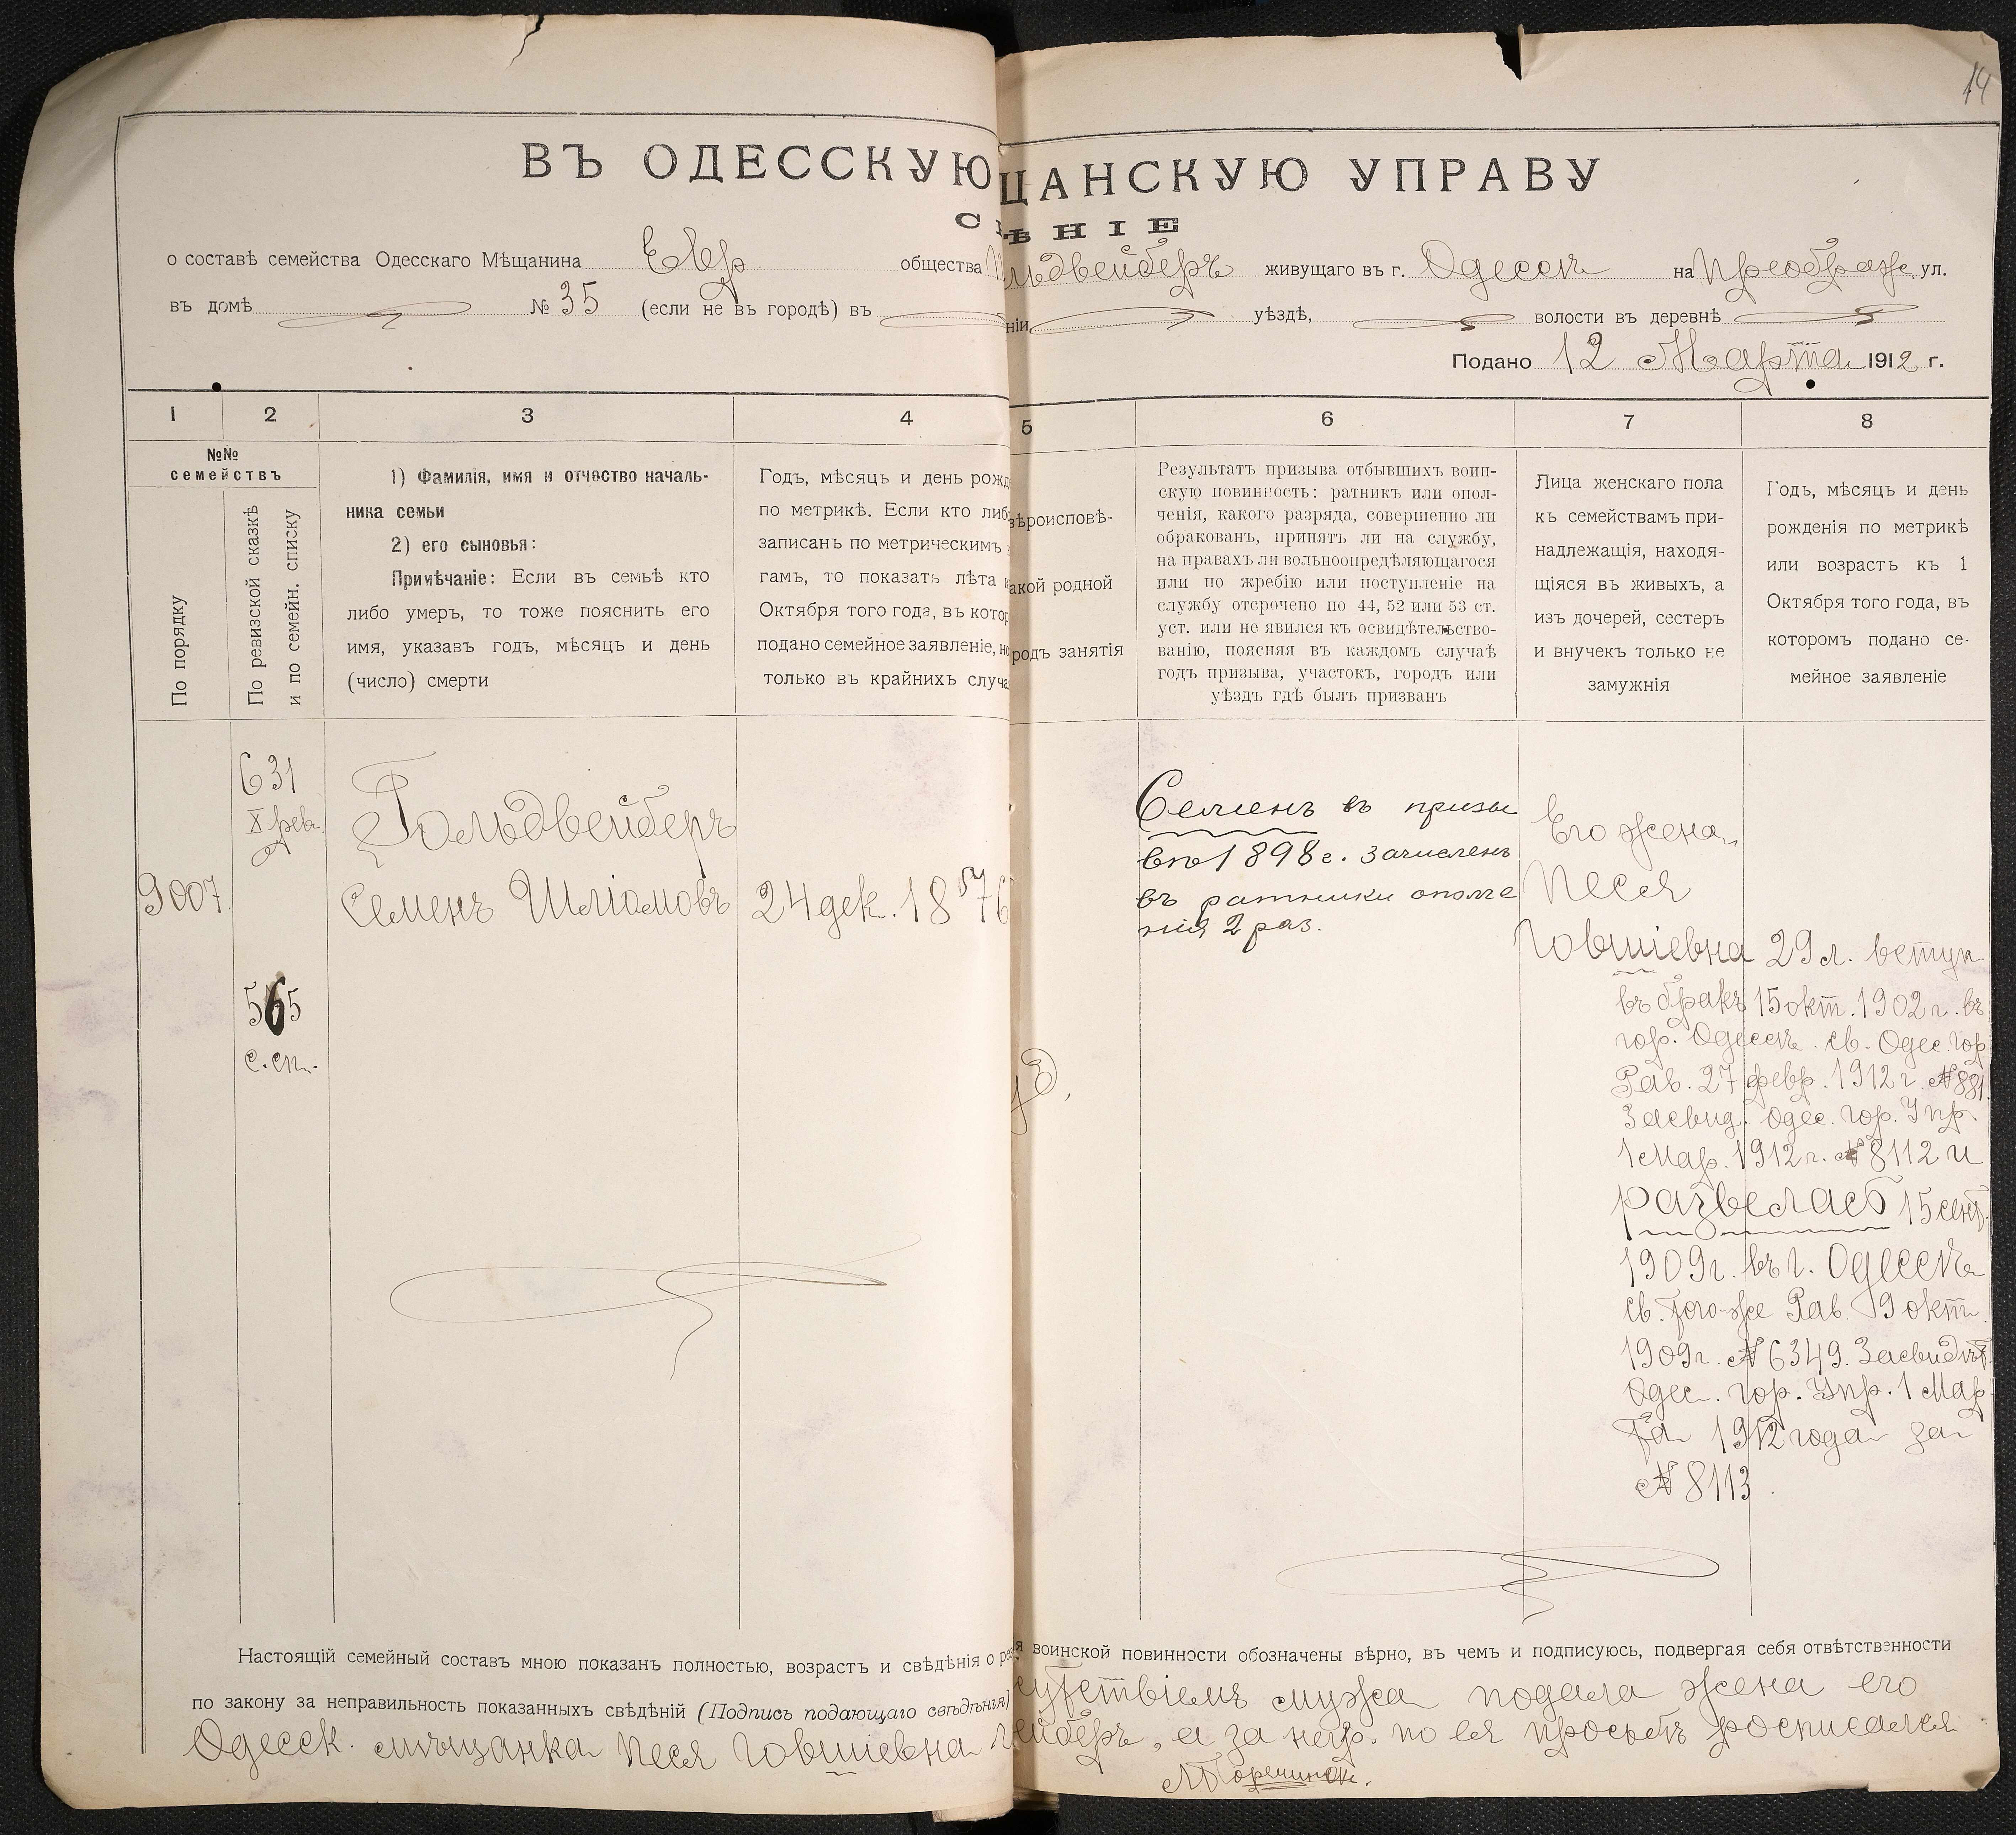 14
ВЪ ОДЕССКУЮ ЩАНСКУЮ УПРАВУ
ѢНІЕ
о составѣ семейства Одесскаго Мѣщанина Евр общества льдвейберъ живущаго въ г. Одессѣ на Преображ. ул.
въ домѣ № 35 (если не въ городѣ) въ ніи уѣздѣ, волости въ деревнѣ
Подано 12 Марта 1912 г.
1 2 3 4 5 6 7 8
№№
семействъ
По порядку
По ревизской сказкѣ
и по семейн. списку
1) Фамилія, имя и отчество началь-
ника семьи
2) его сыновья:
Примѣчаніе: Если въ семьѣ кто
либо умеръ, то тоже пояснить его
имя, указавъ годъ, мѣсяцъ и день
(число) смерти
Годъ, мѣсяцъ и день рожд
по метрикѣ. Если кто либо
записанъ по метрическимъ
гамъ, то показать лѣта
Октября того года, въ котор
подано семейное заявленіе, но
только въ крайнихъ случа
вѣроисповѣ-
акой родной
родъ занятія
Результатъ призыва отбывшихъ воин-
скую повинность: ратникъ или опол-
ченія, какого разряда, совершенно ли
обракованъ, принятъ ли на службу,
на правахъ ли вольноопредѣляющагося
или по жребію или поступленіе на
службу отсрочено по 44, 52 или 53 ст.
уст. или не явился къ освидѣтельство-
ванію, поясняя въ каждомъ случаѣ
годъ призыва, участокъ, городъ или
уѣздъ гдѣ былъ призванъ
Лица женскаго пола
къ семействамъ при-
надлежащія, находя-
щіяся въ живыхъ, а
изъ дочерей, сестеръ
и внучекъ только не
замужнія
Годъ, мѣсяцъ и день
рожденія по метрикѣ
или возрастъ къ 1
Октября того года, въ
которомъ подано се-
мейное заявленіе
9007.
631
X рев.
565
с.сп.
Гольдвейберъ
Семенъ Шліомовъ
24 дек. 1876
Семенъ въ призы
вѣ 1898 г. зачисленъ
въ ратники ополче
нія 2 раз.
Его жена
Песя
Говшіевна 29 л. вступ
въ бракъ 15 окт. 1902 г. въ
гор. Одессѣ. св. Одес. гор
Рав. 27 февр. 1912 г. № 881.
Засвид. Одес. гор. Упр.
1 Мар. 1912 г. № 8112 и
развелась 15 сент.
1909 г. въ г. Одессѣ
св. того-же Рав. 19 окт.
1909 г. № 6349. Засвидѣт.
Одес. гор. Упр. 1 Мар
та 1912 года за
№ 8113.
Настоящій семейный составъ мною показанъ полностью, возрастъ и свѣдѣнія о рез я воинской повинности обозначены вѣрно, въ чемъ и подписуюсь, подвергая себя отвѣтственности
по закону за неправильность показанныхъ свѣдѣній (Подпись подающаго свѣдѣнія) сутствіемъ мужа подала жена его
Одесск. мѣщанка Песя Говшіевна ейберъ, а за негр. по ея просьбѣ росписался